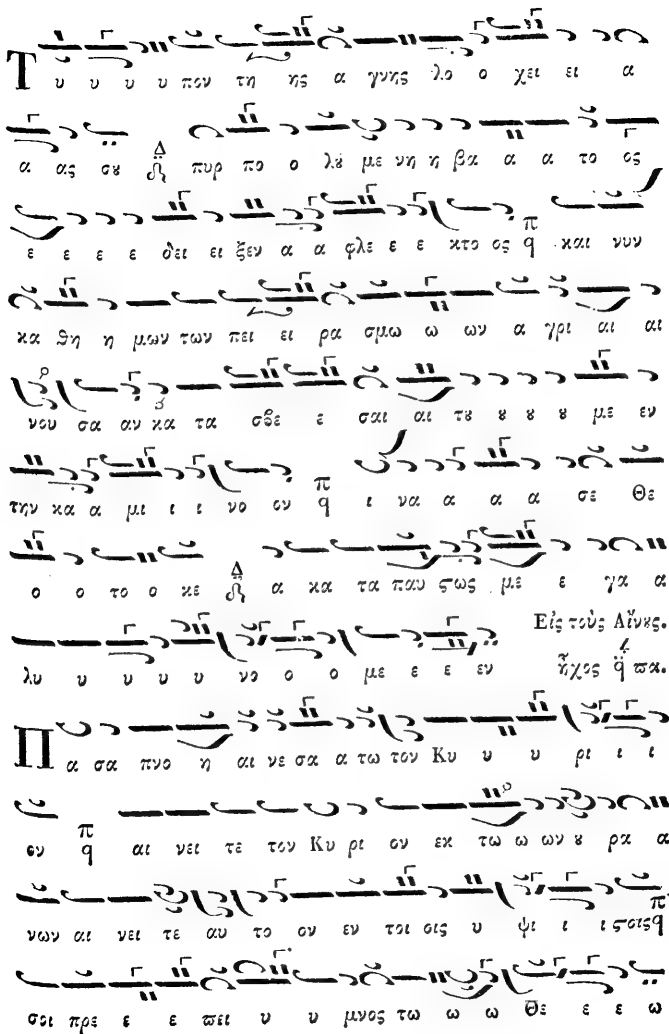 Τ υ υ υ υ πον τη ης α γνης λο ο χει ει α
α ας σȣ Δ πυρ πο ο λȣ με νη η βα α α το ος
ε ε ε ε δει ει ξεν α α φλε ε ε κτο ος π q και νυν
κα θη η μων των πει ει ρα σμω ω ων α γρι αι αι
νου σα αν κα τα σβε ε σαι αι τȣ ȣ ȣ ȣ με εν
την κα α μι ι ι νο ον π q ι να α α α σε Θε
ο ο το ο κε Δ α κα τα παυ ϛως με ε γα α
λυ υ υ υ υ νο ο ο με ε ε εν Εἰς τοὺς Αἴνȣς.
ἦχος q πα.
Π α σα πνο η αι νε σα α τω τον Κυ υ υ ρι ι ι
ον π q αι νει τε τον Κυ ρι ον εκ τω ω ων ȣ ρα α
νων αι νει τε αυ το ον εν τοι οις υ ψι ι ι ϛοις π q
σοι πρε ε ε πει υ υ μνος τω ω ω Θε ε ε ω